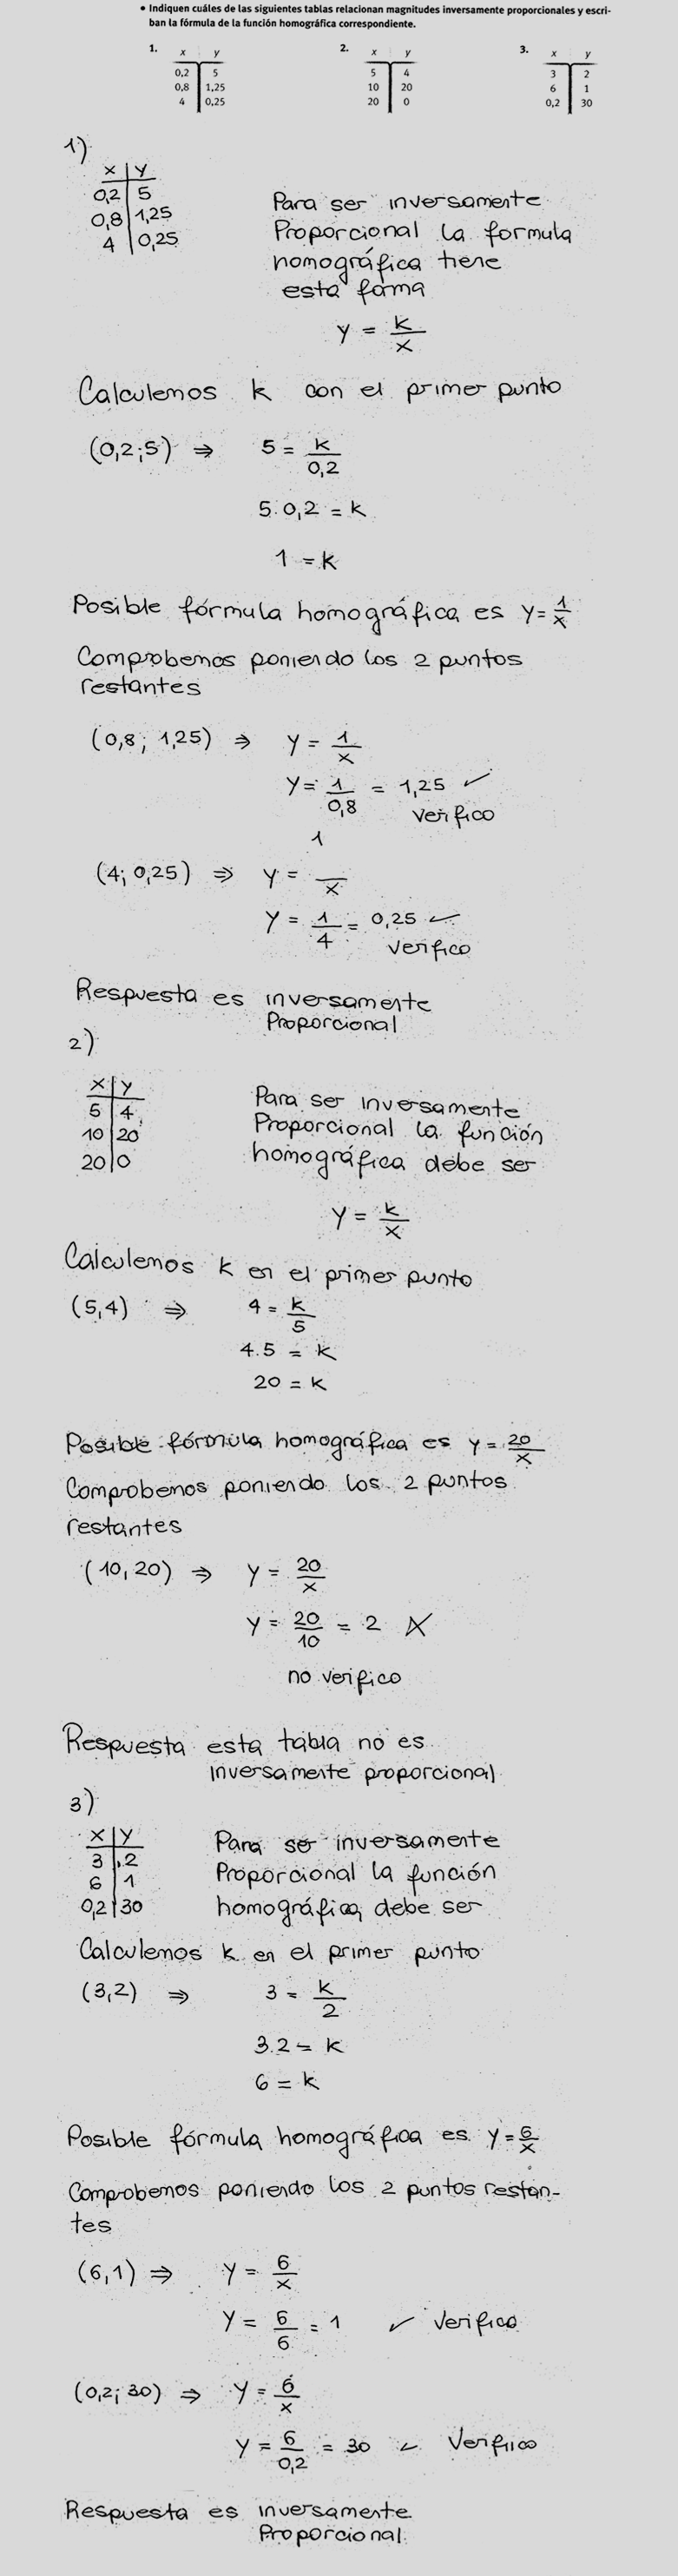 • Indiquen cuáles de las siguientes tablas relacionan magnitudes inversamente proporcionales y escri-
ban la fórmula de la función homográfica correspondiente.
1. x y
0,2 5
0,8 1,25
4 0,25
2. x y
5 4
10 20
20 0
3. x y
3 2
6 1
0,2 30
1)
x y
0,2 5
0,8 1,25
4 0,25
Para ser inversamente
Proporcional la formula
homográfica tiene
esta forma
y = k/x
Calculemos k con el primer punto
(0,2;5) ⇒ 5 = k/0,2
5.0,2 = k
1 = k
Posible fórmula homográfica es y = 1/x
Comprobemos poniendo los 2 puntos
restantes
(0,8; 1,25) ⇒ y = 1/x
y = 1/0,8 = 1,25 ✓
verifico
(4; 0,25) ⇒ y = 1/x
y = 1/4 = 0,25 ✓
verifico
Respuesta es inversamente
Proporcional
2)
x y
5 4
10 20
20 0
Para ser inversamente
Proporcional la función
homográfica debe ser
y = k/x
Calculemos k en el primer punto
(5,4) ⇒ 4 = k/5
4.5 = k
20 = k
Posible fórmula homográfica es y = 20/x
Comprobemos poniendo los 2 puntos
restantes
(10,20) ⇒ y = 20/x
y = 20/10 = 2 X
no verifico
Respuesta esta tabla no es
inversamente proporcional
3)
x y
3 2
6 1
0,2 30
Para ser inversamente
Proporcional la función
homográfica debe ser
Calculemos k en el primer punto
(3,2) ⇒ 3 = k/2
3.2 = k
6 = k
Posible fórmula homográfica es y = 6/x
Comprobemos poniendo los 2 puntos restan-
tes
(6,1) ⇒ y = 6/x
y = 6/6 = 1 ✓ Verifico
(0,2; 30) ⇒ y = 6/x
y = 6/0,2 = 30 ✓ Verifico
Respuesta es inversamente
Proporcional.